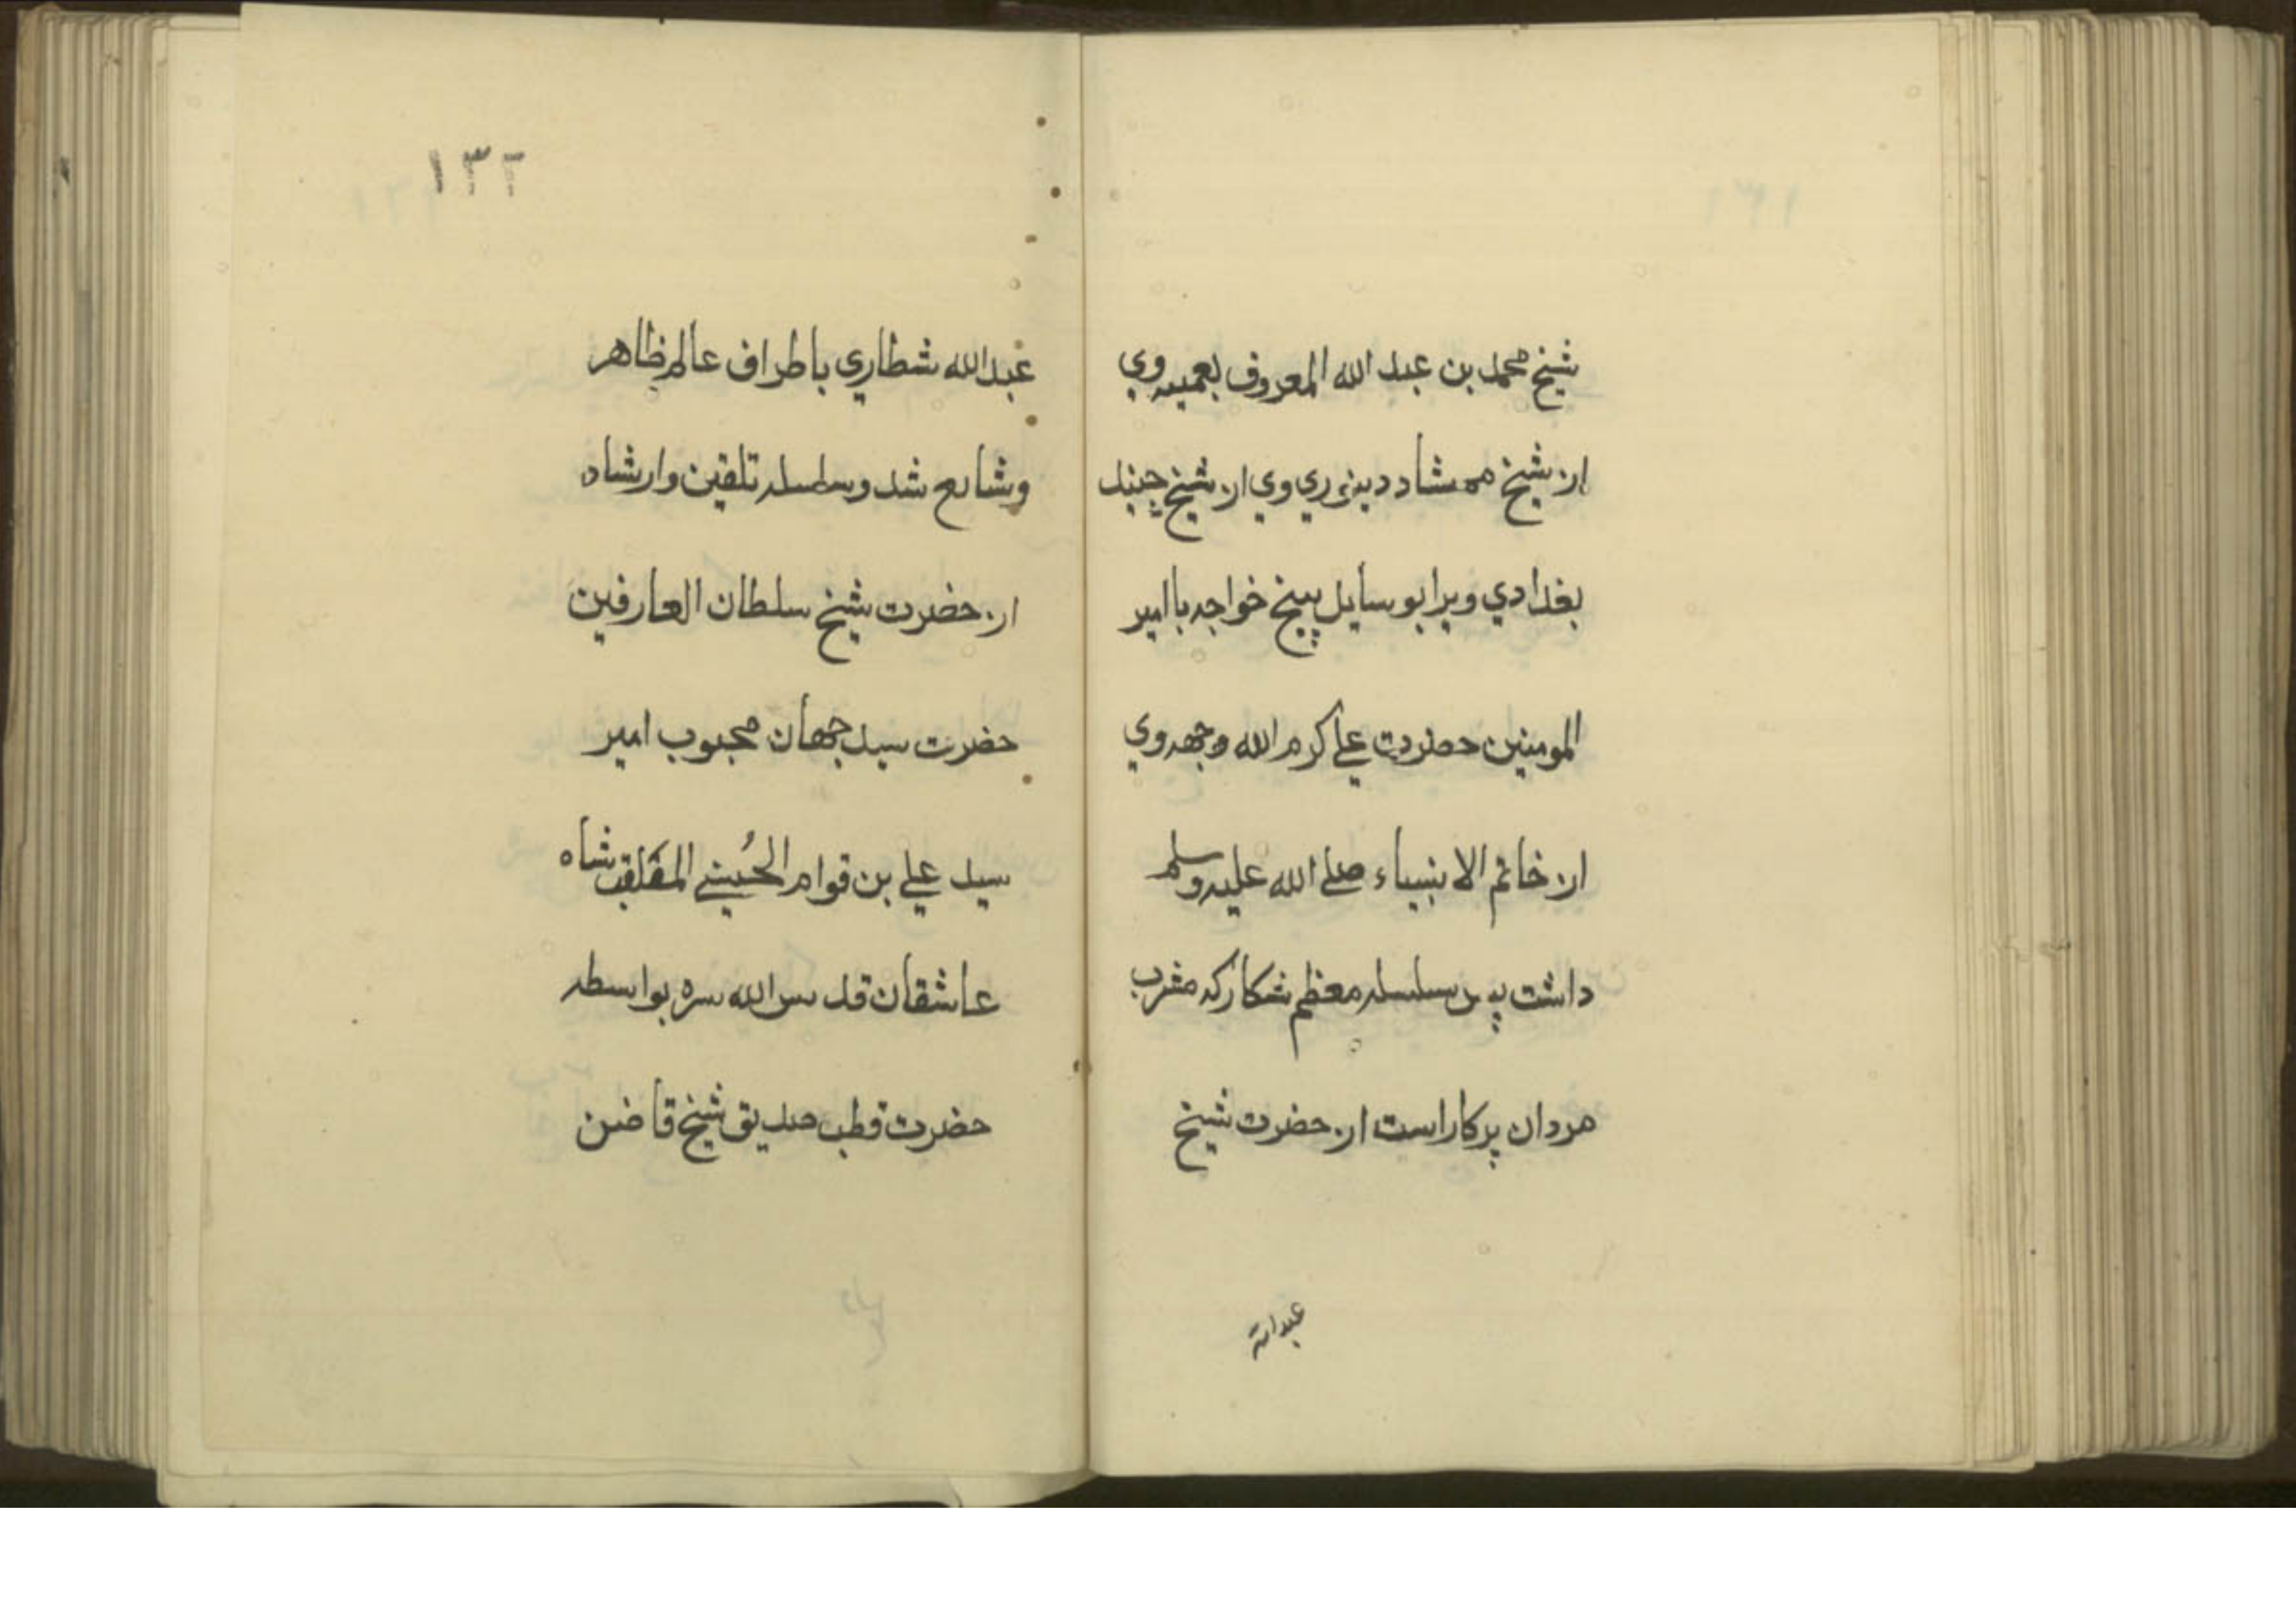 شیخ محمد بن عبد الله المعروف بعمیه وي
از شیخ ممشاد دینوري وي از شیخ جنید
بغدادي ویرا بوسایل پنج خواجه باامیر
المومنین حضرت علي کرم الله وجهه وي
از خاتم الانبیاء صلے الله علیه وسلم
داشت پس سلسله معظم شکار که مشرب
مردان پرکار است از حضرت شیخ
عبدالله
١٣٢
عبدالله شطاري باطراف عالم ظاهر
وشایع شد وسلسله تلقین وارشاد
از حضرت شیخ سلطان العارفین
حضرت سید جهان محبوب امیر
سید علي بن قوام الحُسیني الملقب شاه
عاشقان قدس الله سره بواسطه
حضرت قطب صدیق شیخ قاضن